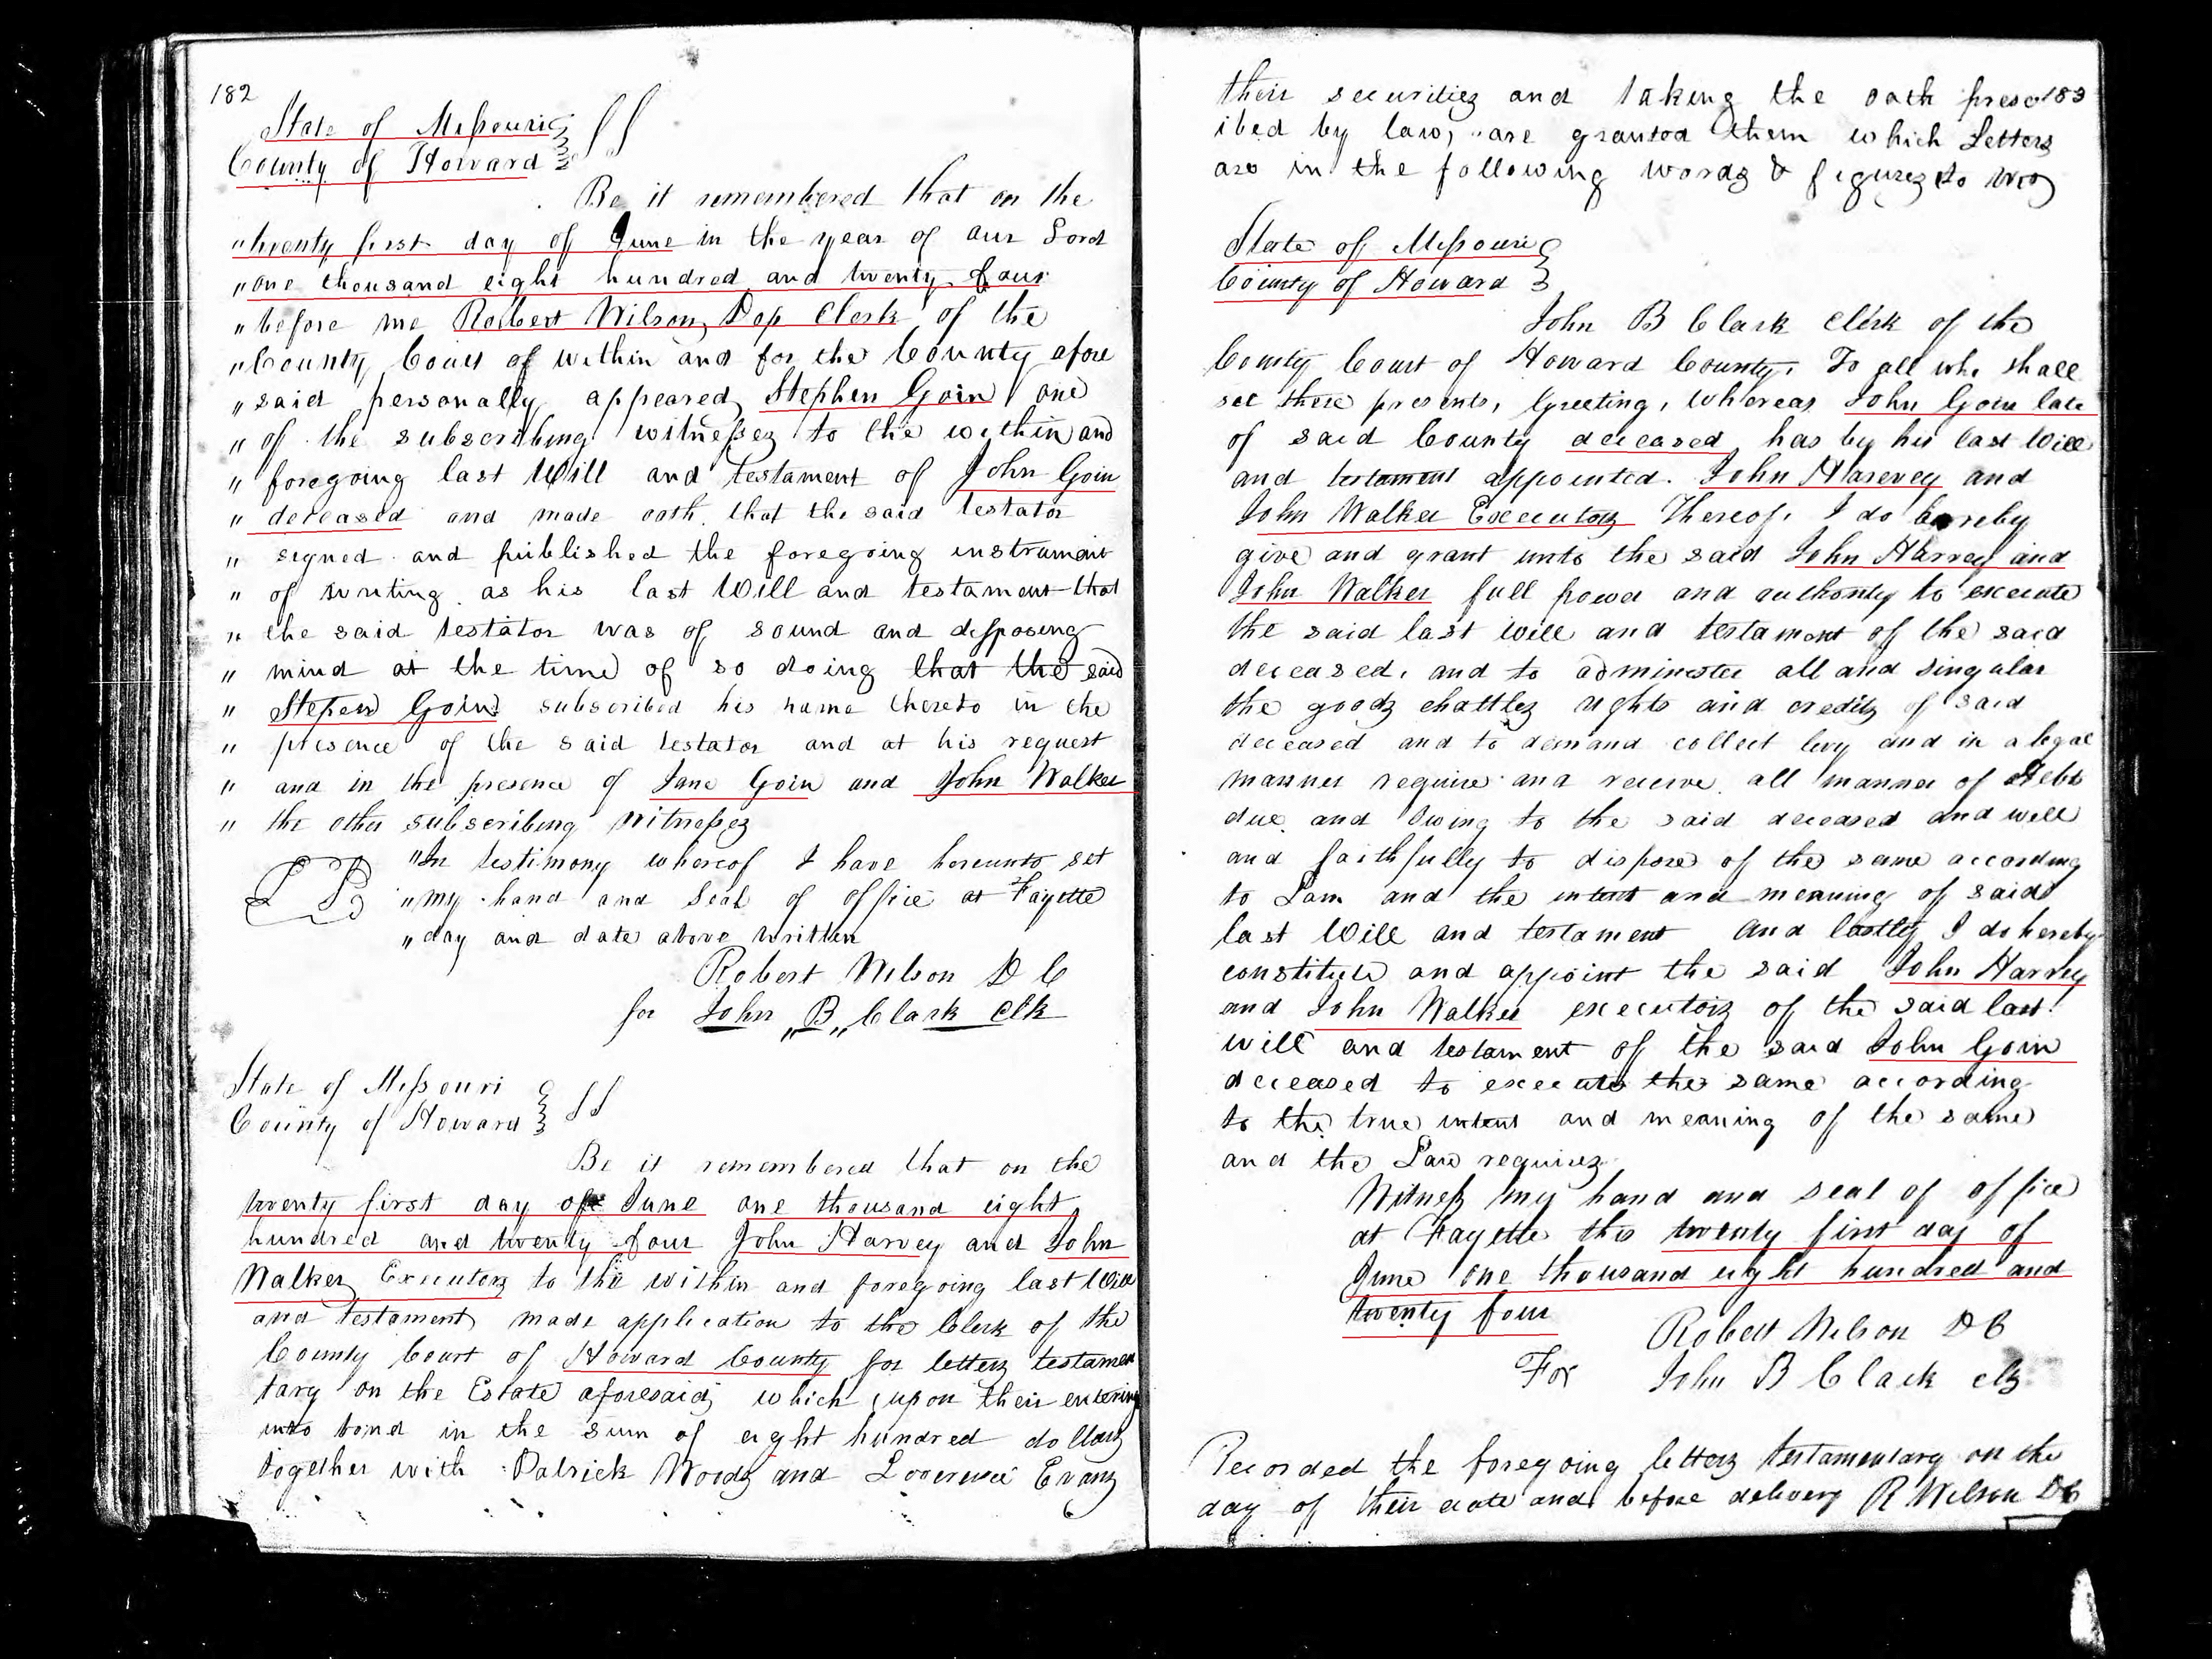 182
State of Missouri
County of Howard } SS
Be it remembered that on the
" twenty first day of June in the year of our Lord
" one thousand eight hundred and twenty four
" before me Robert Wilson Dep Clerk of the
" County Court of within and for the County afore
" said personally appeared Stephen Goin one
" of the subscribing witnesses to the within and
" foregoing last Will and testament of John Goin
" deceased and made oath that the said testator
" signed and published the foregoing instrument
" of writing as his last Will and testament that
" the said testator was of sound and disposing
" mind at the time of so doing that the said
" Stepen Goin subscribed his name thereto in the
" presence of the said testator and at his request
" and in the presence of Jane Goin and John Walker
" the other subscribing witnesses
"In testimony whereof I have hereunto set
" my hand and Seal of office at Fayette
" day and date above written
Robert Wilson D C
for John "B" Clark Clk
State of Missouri
County of Howard } SS
Be it remembered that on the
twenty first day of June one thousand eight
hundred and twenty four John Harvey and John
Walker Executors to the within and foregoing last Will
and testament made application to the Clerk of the
County Court of Howard County for letters testamen
tary on the Estate aforesaid which upon their entering
into bond in the sum of eight hundred dollars
together with Patrick Woods and Evans
their securities and taking the oath prescr 183
ibed by law, are granted them which Letters
are in the following words & figures to wit
State of Missouri
County of Howard }
John B Clark Clerk of the
County Court of Howard County. To all who shall
see these presents, Greeting, Whereas John Goin late
of said County deceased has by his last Will
and testament appointed. John Harevey and
John Walker Executors Thereof. I do hereby
give and grant unto the said John Harvey and
John Walker full power and authority to execute
the said last will and testament of the said
deceased, and to administer all and singular
the goods chattles rights and credits of said
deceased and to demand collect levy and in a legal
manner require and receive all manner of debts
due and owing to the said deceased and well
and faithfully to dispose of the same according
to Law and the intent and meaning of said
last Will and testament And lastly I do hereby
constitute and appoint the said John Harvey
and John Walker executors of the said last
will and testament of the said John Goin
deceased to execute the same according
to the true intent and meaning of the same
and the Law requires
Witness my hand and seal of office
at Fayette this twenty first day of
June one thousand eight hundred and
twenty four
Robert Wilson D C
For John B Clark clk
Recorded the foregoing letters testamentary on the
day of their date and before delivery R Wilson DC